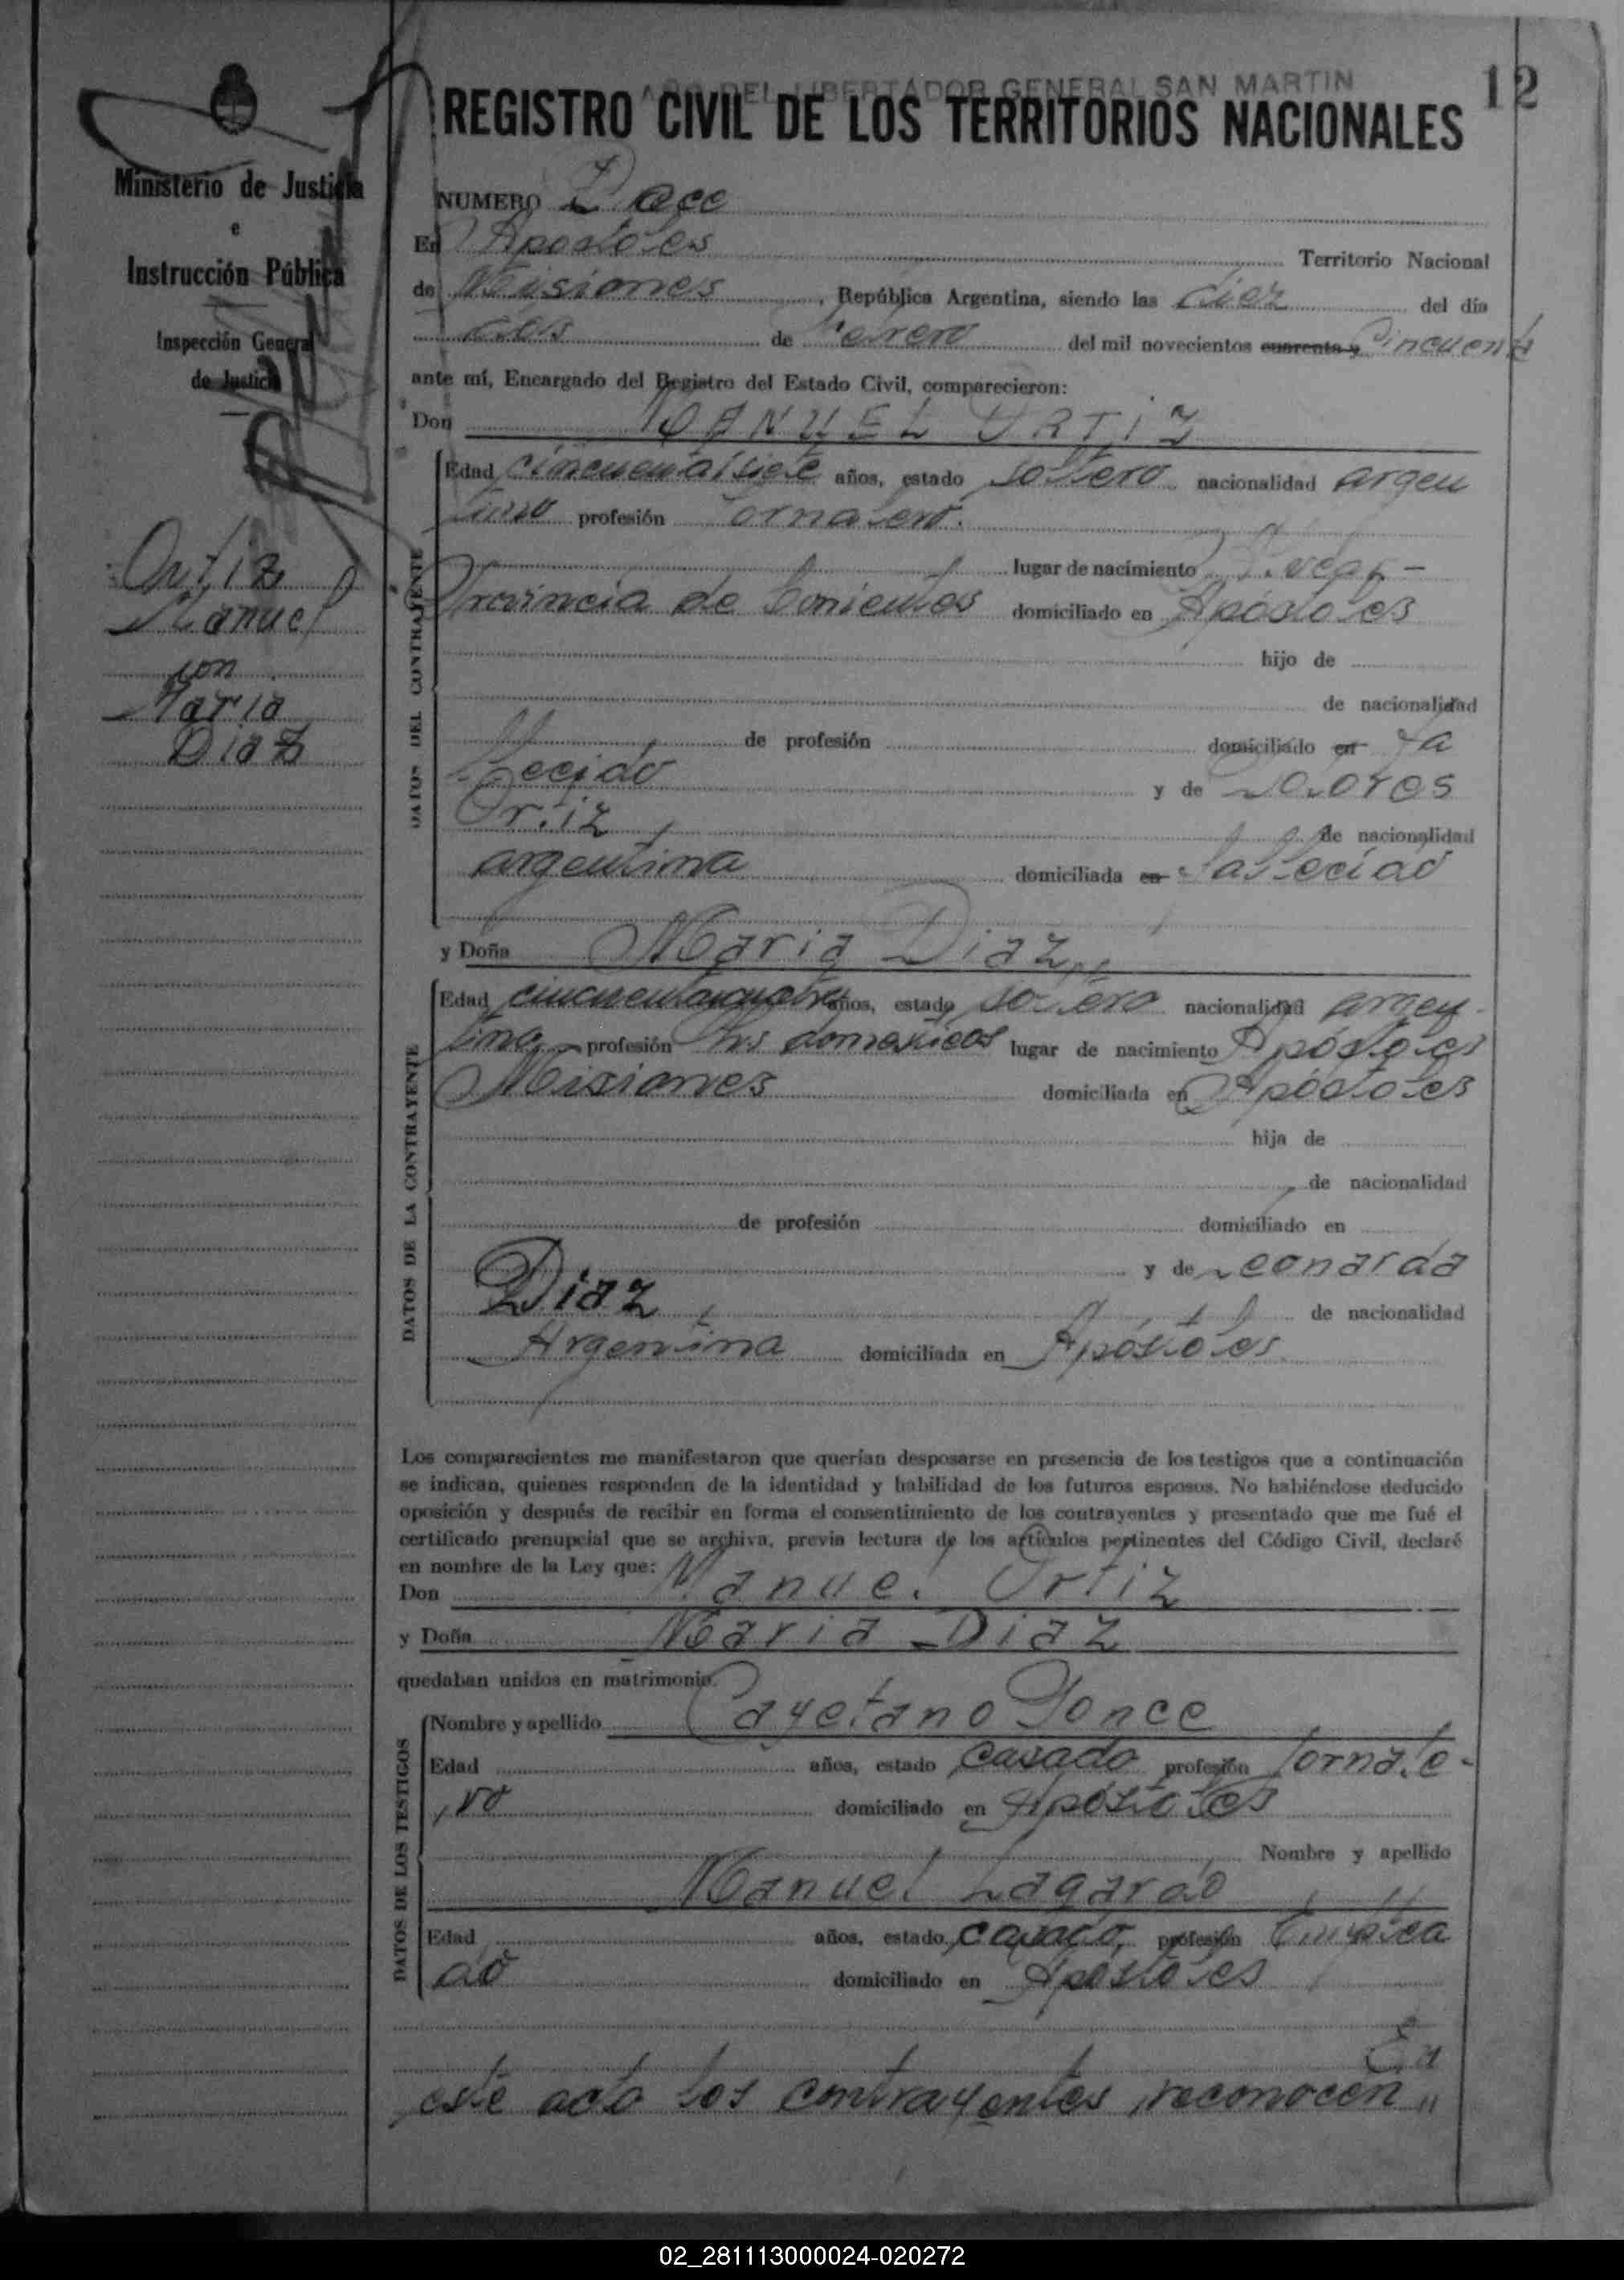 AÑO DEL LIBERTADOR GENERAL SAN MARTIN
12
REGISTRO CIVIL DE LOS TERRITORIOS NACIONALES
Ministerio de Justicia
e
Instrucción Pública
Inspección General
de Justicia
Ortiz
Manuel
con
Maria
Diaz
NUMERO Doce
En Apostoles Territorio Nacional
de Misiones, República Argentina, siendo las diez del día
dos de Febrero del mil novecientos cuarenta y Cincuenta
ante mí, Encargado del Registro del Estado Civil, comparecieron:
Don MANUEL ORTIZ
DATOS DEL CONTRAYENTE
Edad cincuentaisiete años, estado soltero nacionalidad argen
tino profesión Jornalero.
lugar de nacimiento
Provincia de Corrientes domiciliado en Apóstoles
hijo de
de nacionalidad
de profesión domiciliado en fa
llecido y de Dolores
Ortiz de nacionalidad
argentina domiciliada en fallecido
y Doña Maria Diaz
DATOS DE LA CONTRAYENTE
Edad cincuentaicuatro años, estado soltero nacionalidad argen-
tina profesión Qhs domesticos lugar de nacimiento Apóstoles
Misiones domiciliada en Apóstoles
hija de
de nacionalidad
de profesión domiciliado en
y de Leonarda
Diaz de nacionalidad
Argentina domiciliada en Apóstoles
Los comparecientes me manifestaron que querían desposarse en presencia de los testigos que a continuación
se indican, quienes responden de la identidad y habilidad de los futuros esposos. No habiéndose deducido
oposición y después de recibir en forma el consentimiento de los contrayentes y presentado que me fué el
certificado prenupcial que se archiva, previa lectura de los artículos pertinentes del Código Civil, declaré
en nombre de la Ley que:
Don Manuel Ortiz
y Doña Maria Diaz
quedaban unidos en matrimonio.
DATOS DE LOS TESTIGOS
Nombre y apellido Cayetano Ponce
Edad años, estado Casado profesión Jornale-
ro domiciliado en Apóstoles
Nombre y apellido
Manuel Lagardo
Edad años, estado casado, profesión Emplea
do domiciliado en Apóstoles
En
este acto los contrayentes, reconocen "
02_281113000024-020272